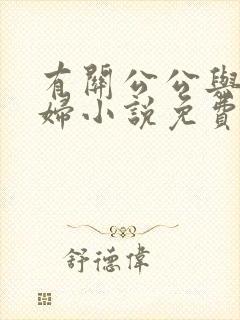 有關公公與
婦小說免費
舒德偉